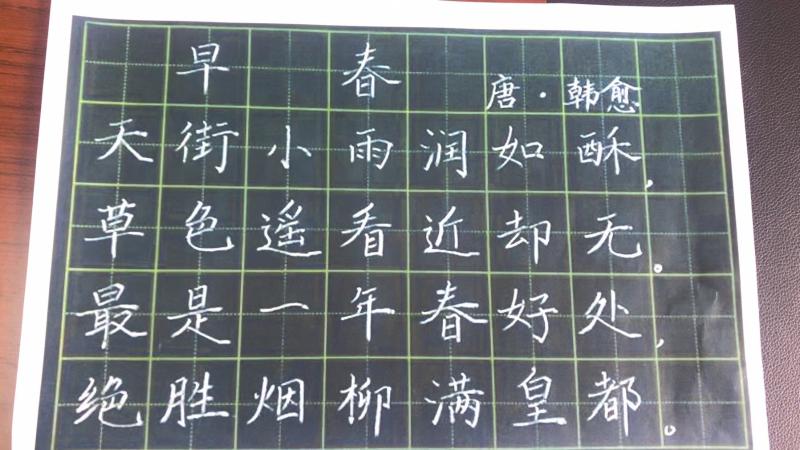 早春
唐·韩愈
天街小雨润如酥，
草色遥看近却无。
最是一年春好处，
绝胜烟柳满皇都。